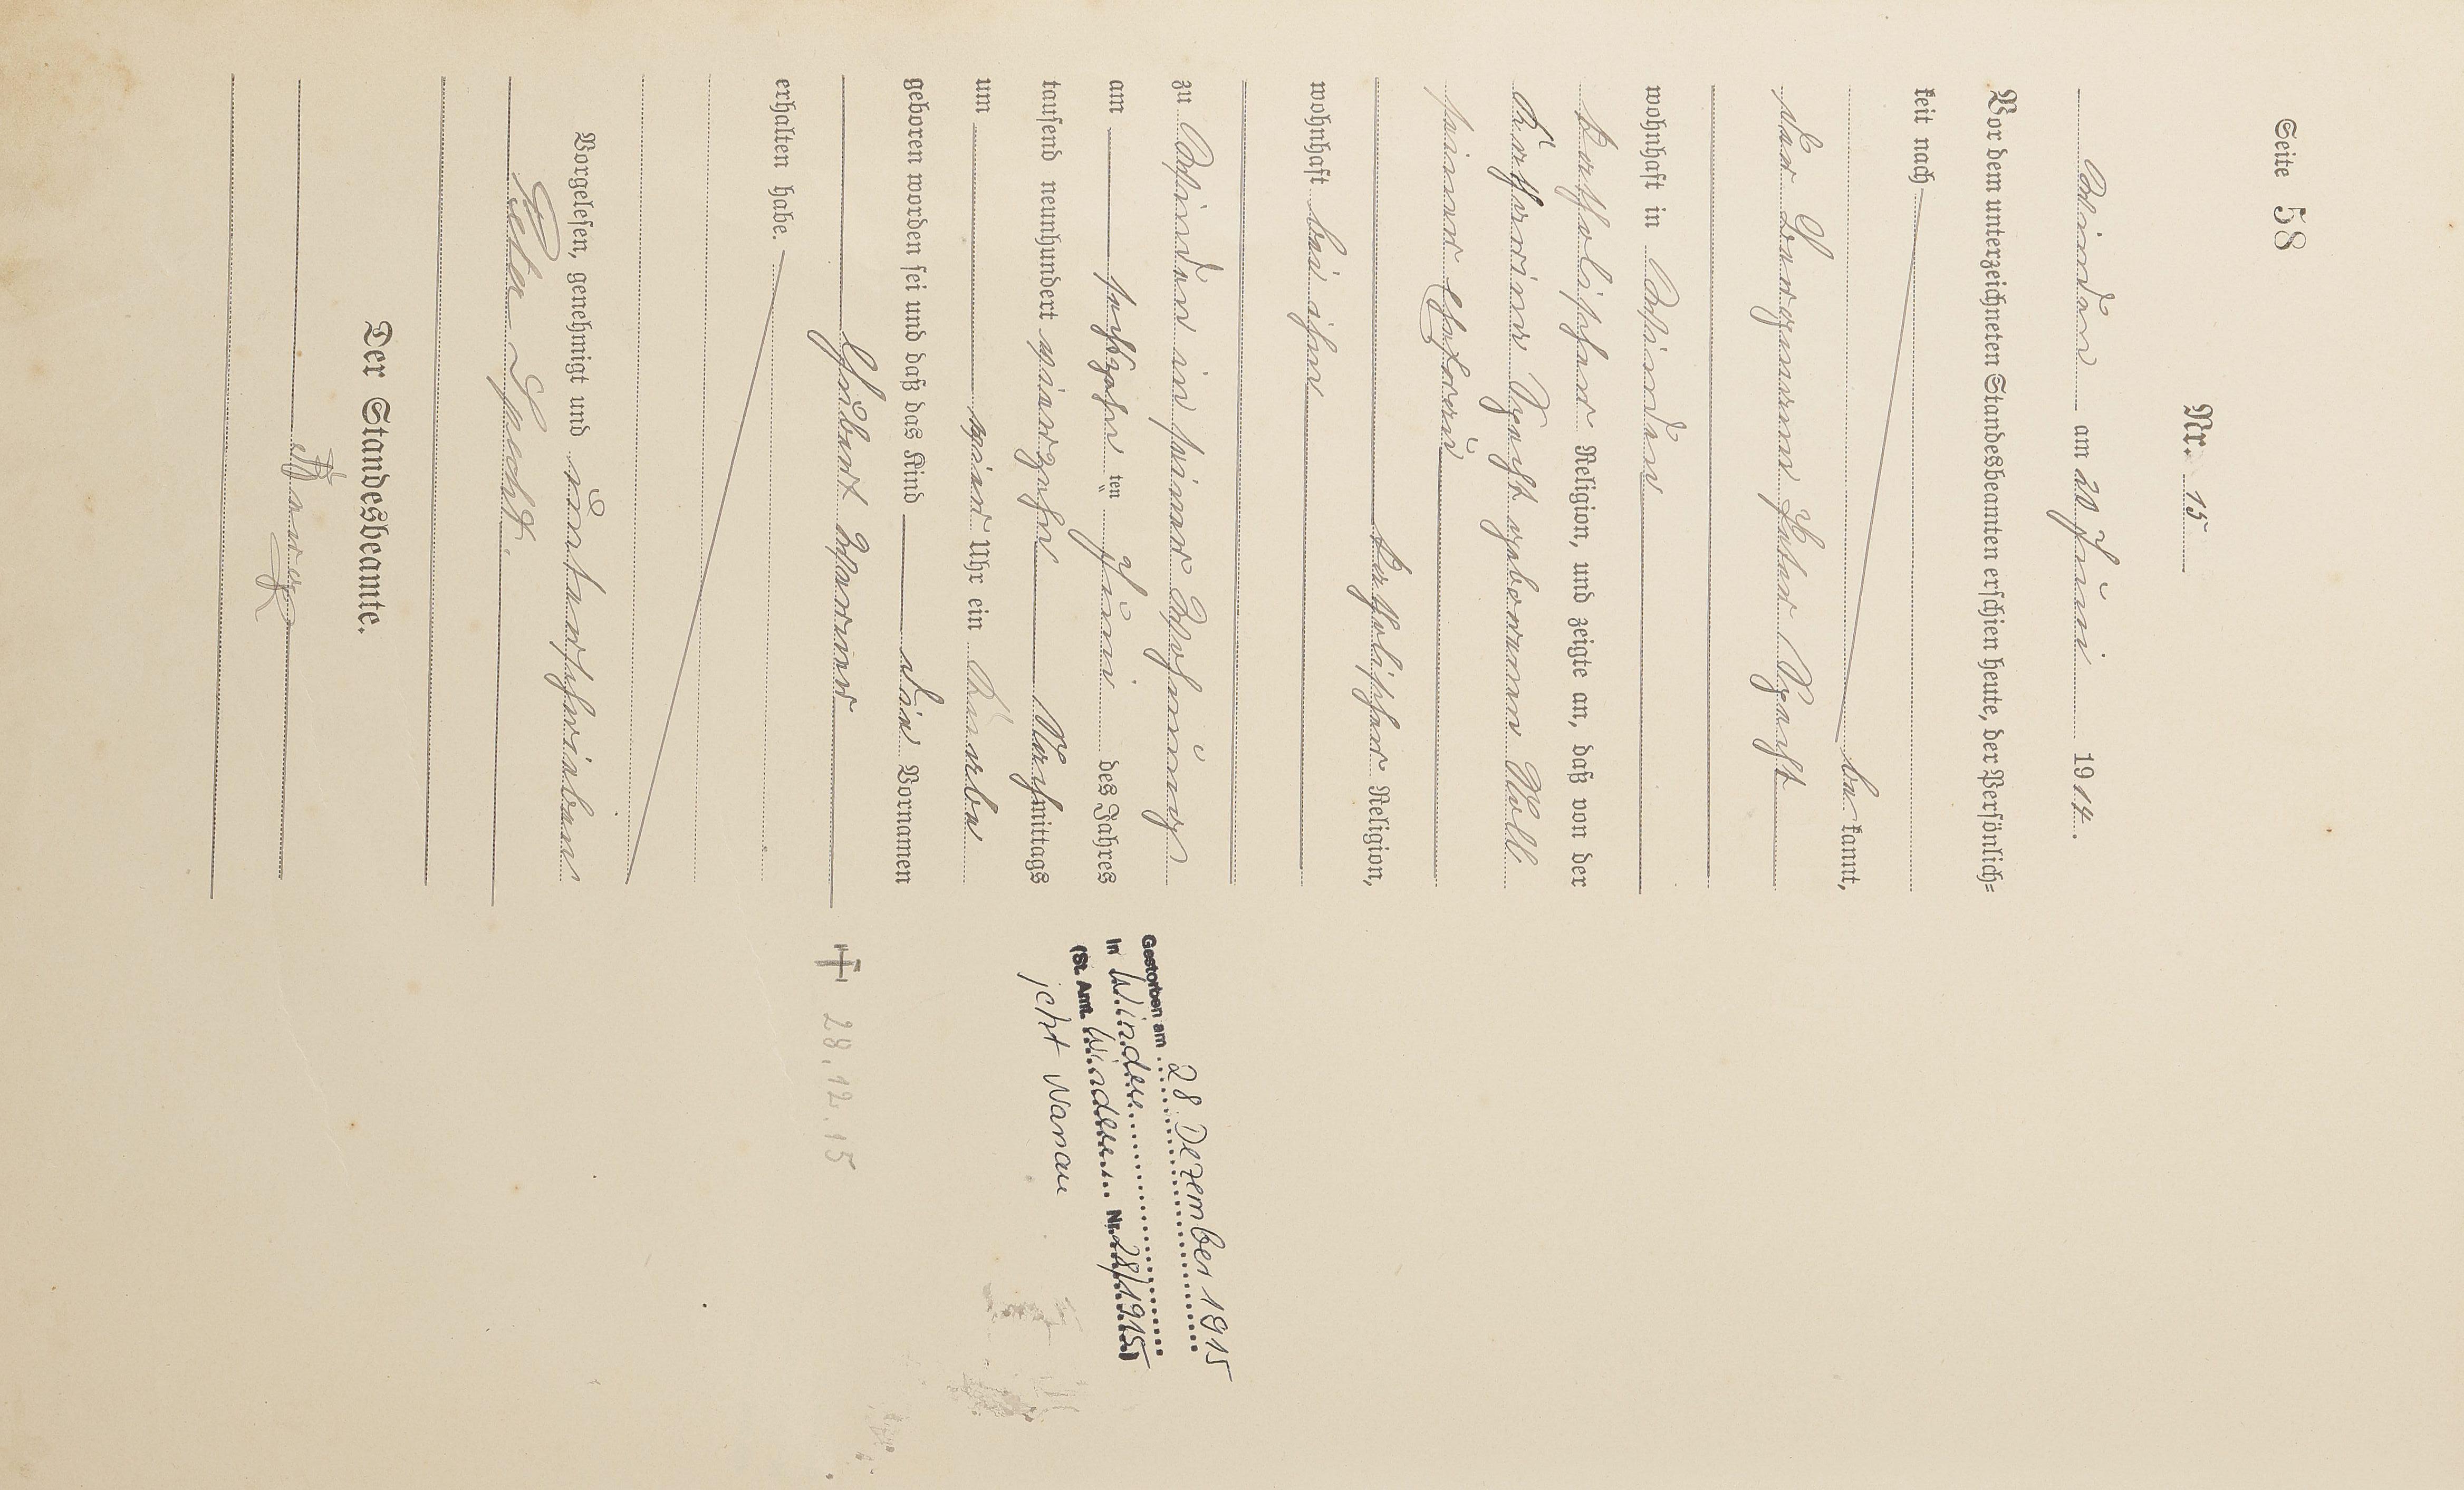 Seite 58
Nr. 15
Winden am 20 Juni 1914.
Vor dem unterzeichneten Standesbeamten erschien heute, der Persönlich=
keit nach
be kannt,
der Bergmann Peter Specht
wohnhaft in Winden
katholischer Religion, und zeigte an, daß von der
Katharina Specht geborenen Noll
seiner Ehefrau
katholischer Religion,
wohnhaft bei ihm
zu Winden in seiner Wohnung
am sechszehn ten Juni des Jahres
tausend neunhundert vierzehn Nachmittags
um vier Uhr ein Knabe
geboren worden sei und daß das Kind die Vornamen
Hubert
erhalten habe.
Vorgelesen, genehmigt und unterschrieben
Peter Specht.
Der Standesbeamte.
Gestorben am 28. Dezember 1915
in Winden
(St. Amt. Winden Nr. 28/1915)
jetzt Nassau
† 28.12.15